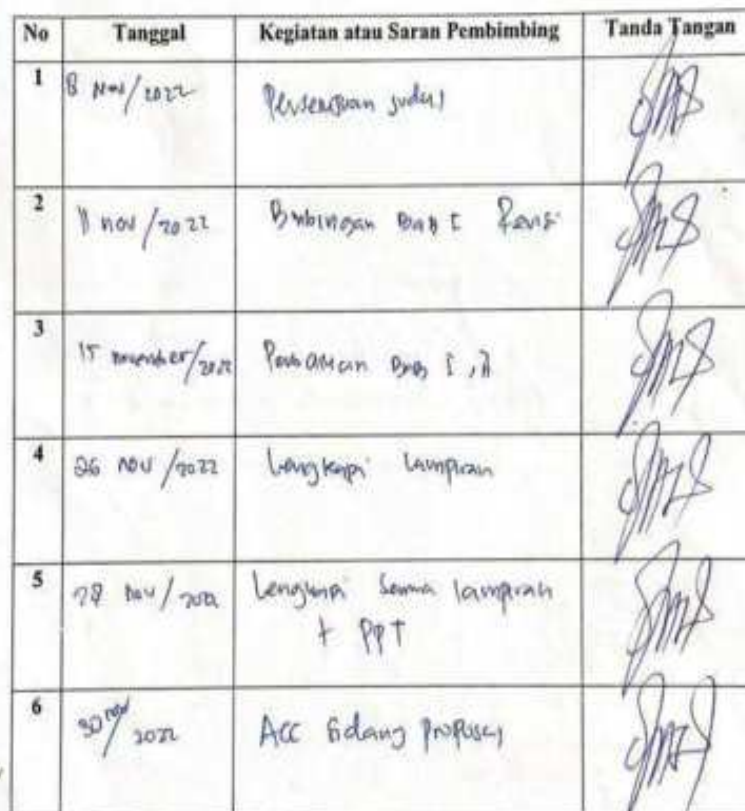 No Tanggal Kegiatan atau Saran Pembimbing Tanda Tangan
1 8 Nov/2022 Persetujuan judul
2 11 nov/2022 Bimbingan Bab I Revisi
3 15 november/2022 Perbaikan Bab I, II
4 26 nov/2022 Lengkapi lampiran
5 28 nov/2022 Lengkapi semua lampiran
+ PPT
6 30 nov/2022 ACC Sidang proposal